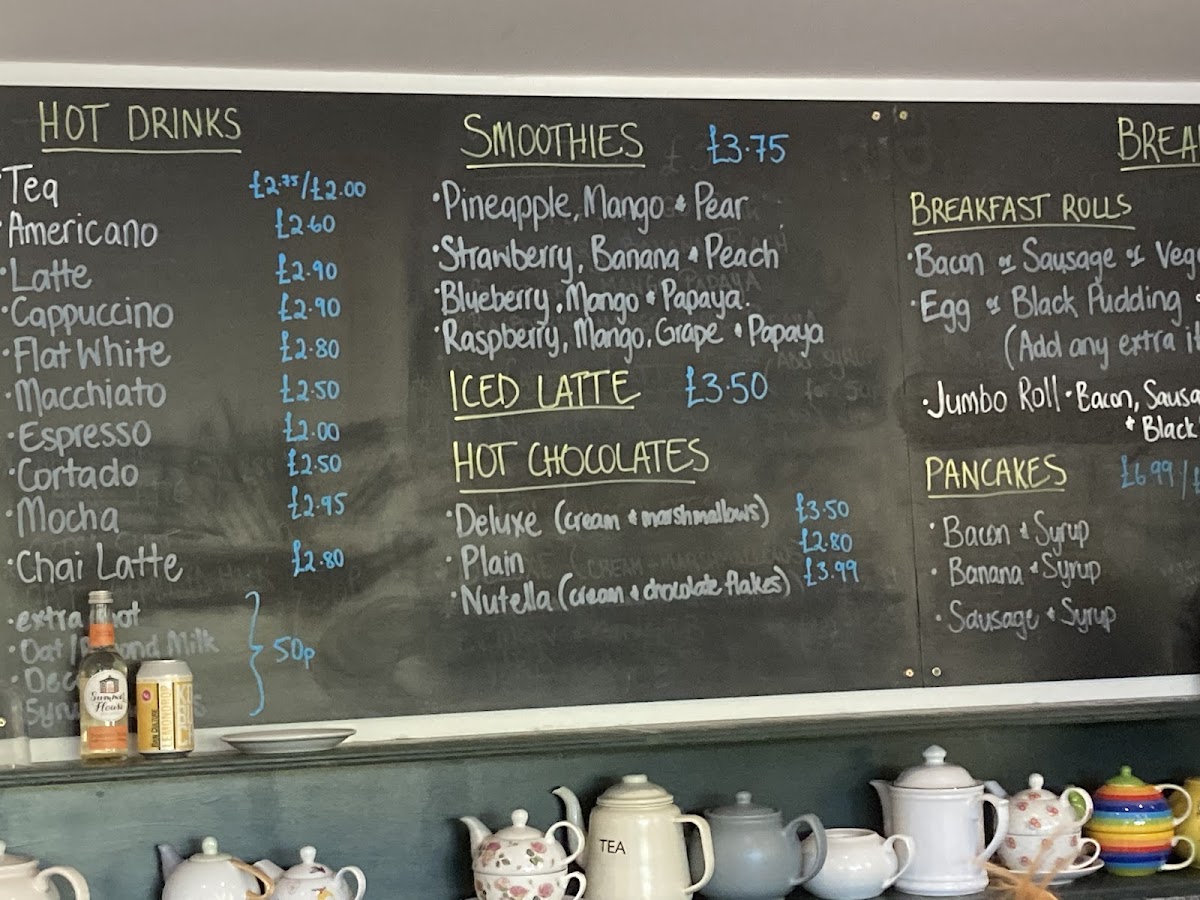 HOT DRINKS
·Tea £2.75/£2.00
·Americano £2.60
·Latte £2.90
·Cappuccino £2.90
·Flat White £2.80
·Macchiato £2.50
·Espresso £2.00
·Cortado £2.50
·Mocha £2.95
·Chai Latte £2.80
·extra
·Oat / Milk
50p
SMOOTHIES £3.75
·Pineapple, Mango & Pear
·Strawberry, Banana & Peach
·Blueberry, Mango & Papaya.
·Raspberry, Mango, Grape & Papaya
ICED LATTE £3.50
HOT CHOCOLATES
·Deluxe (cream & marshmallows) £3.50
·Plain £2.80
·Nutella (cream & chocolate flakes) £3.99
BREA
BREAKFAST ROLLS
·Bacon or Sausage or Veg
·Egg or Black Pudding
(Add any extra it
·Jumbo Roll · Bacon, Sausa
& Black
PANCAKES £6.99/£
·Bacon & Syrup
·Banana & Syrup
·Sausage & Syrup
House
TEA